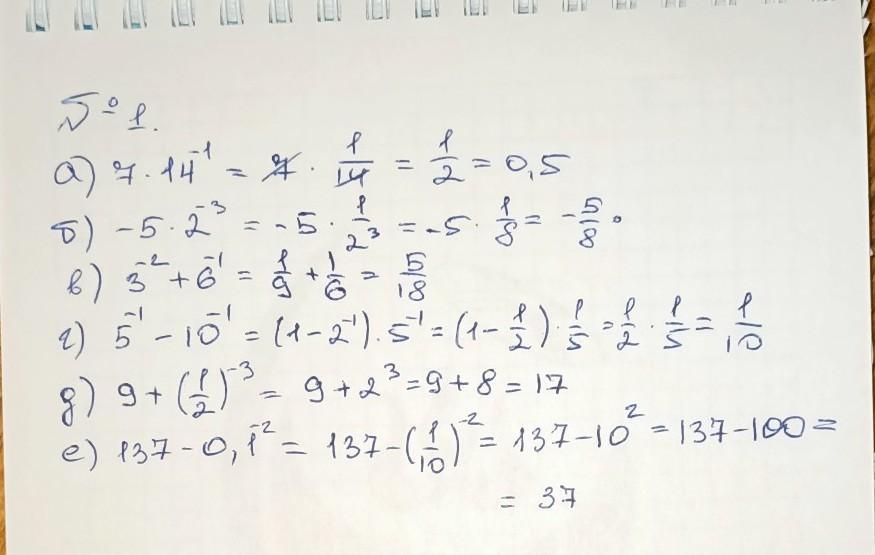 № 1.
а) 7 · 14⁻¹ = 7 · 1/14 = 1/2 = 0,5
б) -5 · 2⁻³ = -5 · 1/2³ = -5 · 1/8 = -5/8.
в) 3⁻² + 6⁻¹ = 1/9 + 1/6 = 5/18
г) 5⁻¹ - 10⁻¹ = (1 - 2⁻¹) · 5⁻¹ = (1 - 1/2) · 1/5 = 1/2 · 1/5 = 1/10
д) 9 + (1/2)⁻³ = 9 + 2³ = 9 + 8 = 17
е) 137 - 0,1⁻² = 137 - (1/10)⁻² = 137 - 10² = 137 - 100 =
= 37